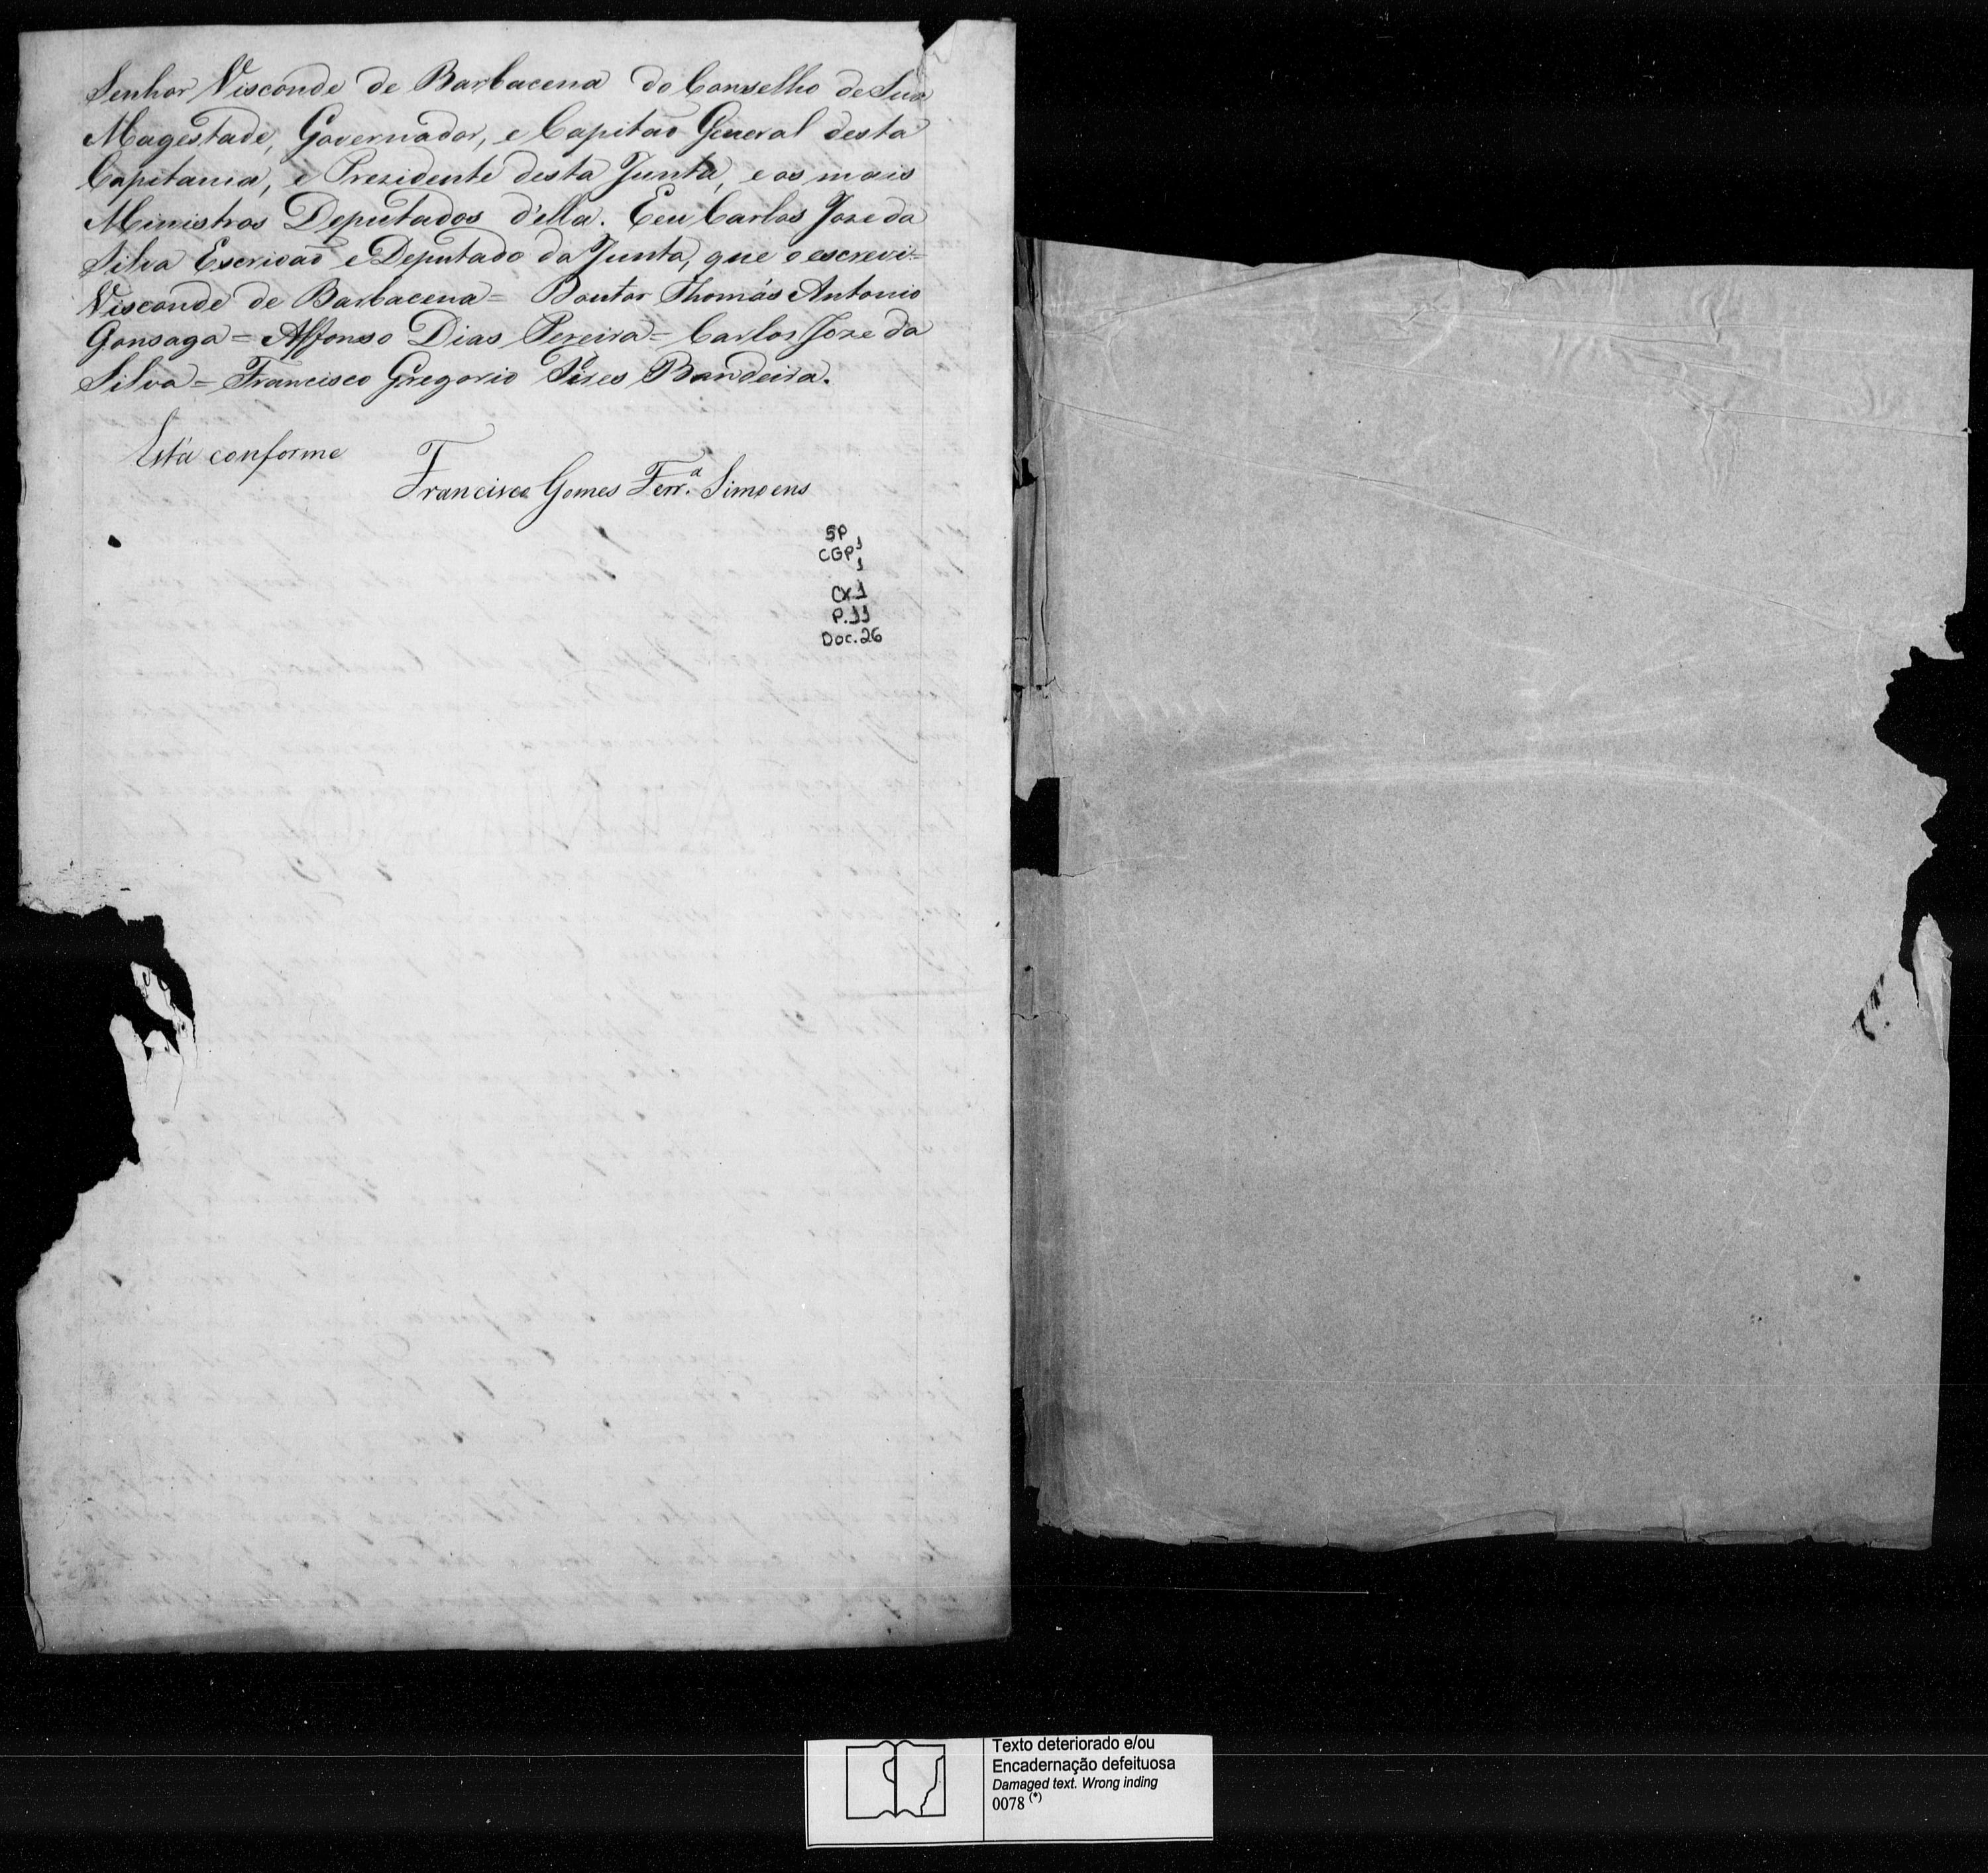 Senhor Visconde de Barbacena do Conselho de Sua
Magestade, Governador, e Capitaõ General desta
Capitania, e Prezidente desta Junta, e os mais
Ministros Deputados d'ella. E eu Carlos Joze da
Silva Escrivaõ e Deputado da Junta, que o escrevi=
Visconde de Barbacena= Doutor Thomás Antonio
Gonsaga= Affonso Dias Pereira= Carlos Joze da
Silva= Francisco Gregorio Pires Bandeira.
Está conforme
Francisco Gomes Ferr.ª Simoens
SP
CGP 1
1
CX 1
P. 11
Doc. 26
Texto deteriorado e/ou
Encadernação defeituosa
Damaged text. Wrong inding
0078 (*)